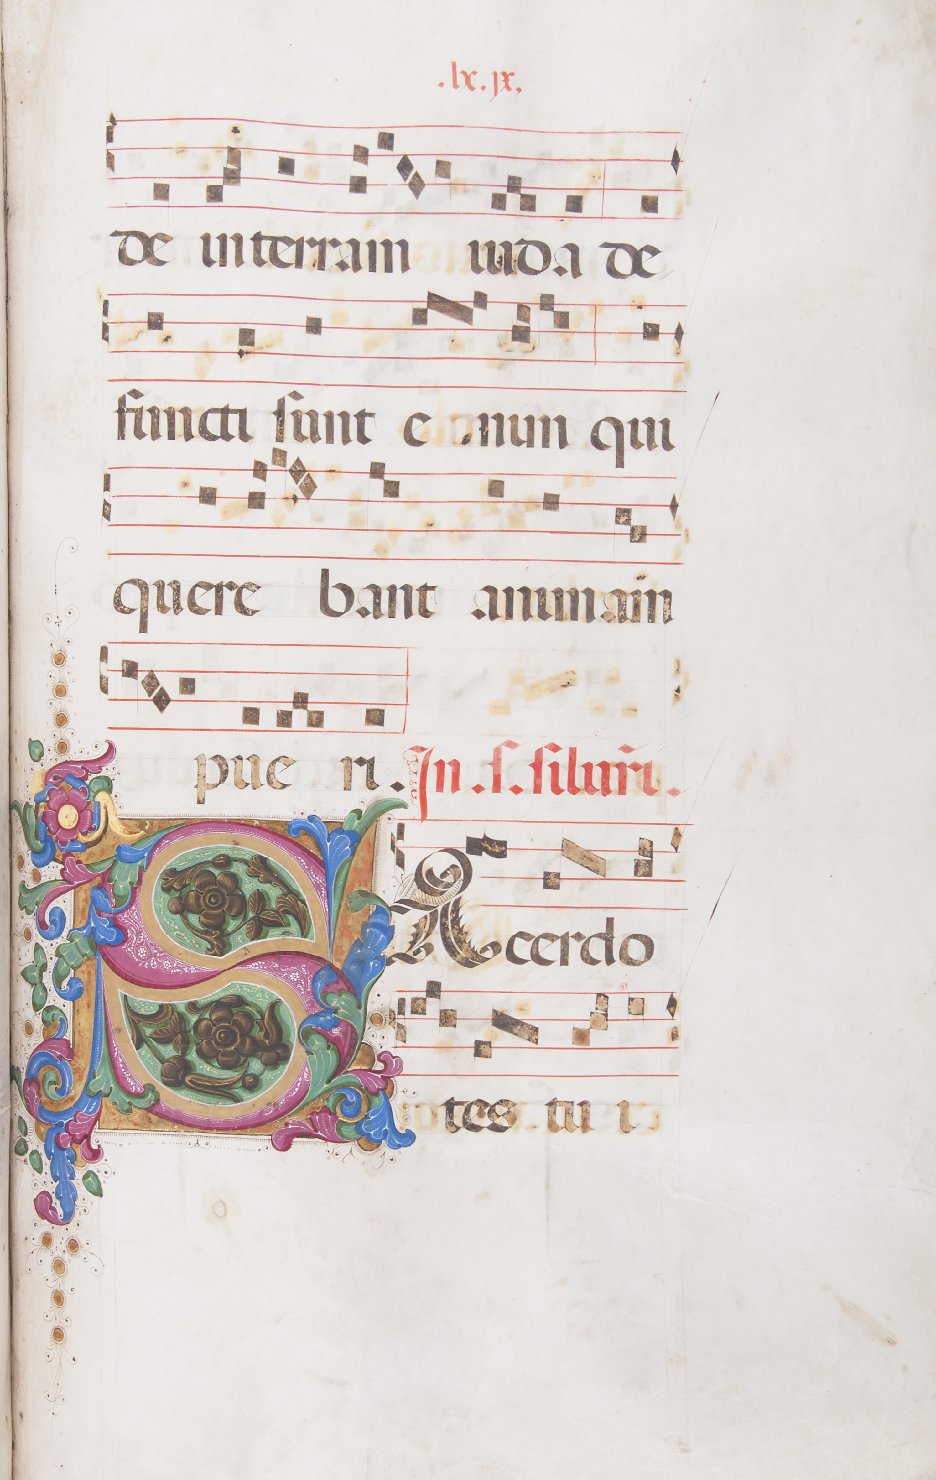 .lx.jx.
de in terram iuda de
functi sunt enim qui
quere bant animam
pue ri. In .s. silu̅ri.
SAcerdo
tes tu i